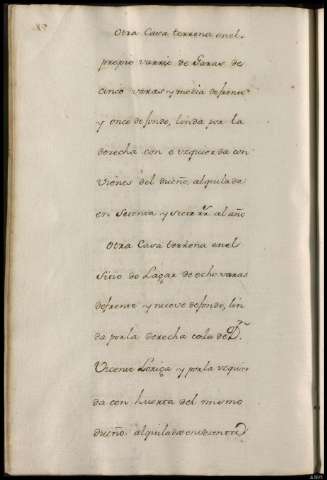 Otra Casa terrena en el
propio varrio de Garas de
cinco varas y media de frente
y once de fondo, linda por la
derecha con e yzquierda con
vienes del dueño, alquilada
en setenta y siete rr.ˢ al año
Otra Casa terrena en el
sitio de Lagar de ocho varas
de frente y nueve de fondo, lin
da por la derecha casa de D.ⁿ
Vicente Loriga y por la yzquier
da con huerta del mismo
dueño alquilada en